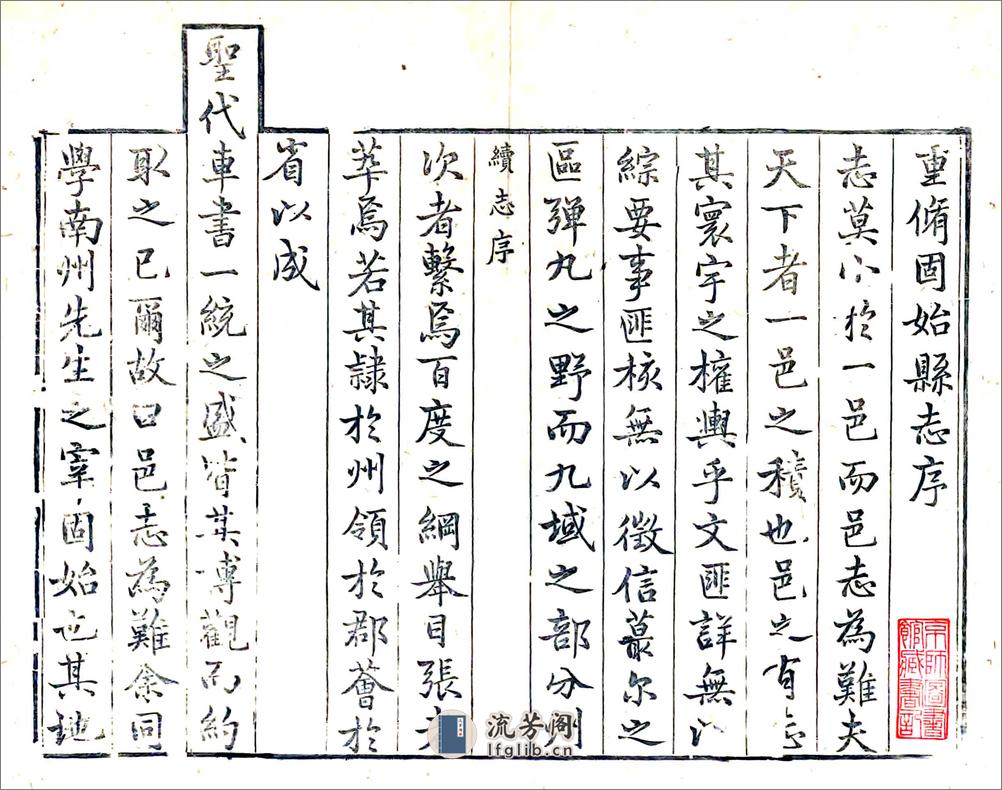 重脩固始縣志序
志莫小於一邑而邑志為難夫
天下者一邑之積也邑之有志
其寰宇之權輿乎文匪詳無以
綜要事匪核無以徵信蕞尔之
區弹丸之野而九域之部分列
續志序
次者繫焉百度之綱舉目張
萃焉若其隷於州領於郡薈於
省以成
聖代車書一統之盛皆其博觀而約
取之已爾故曰邑志為難余同
學南州先生之宰固始也其地
京師圖書
館藏書記
流芳阁
lfglib.cn